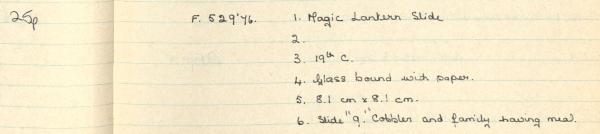 25p F. 529'76. 1. Magic Lantern Slide
2.
3. 19th C.
4. Glass bound with paper.
5. 8.1 cm x 8.1 cm.
6. Slide "9." Cobbler and family having meal.